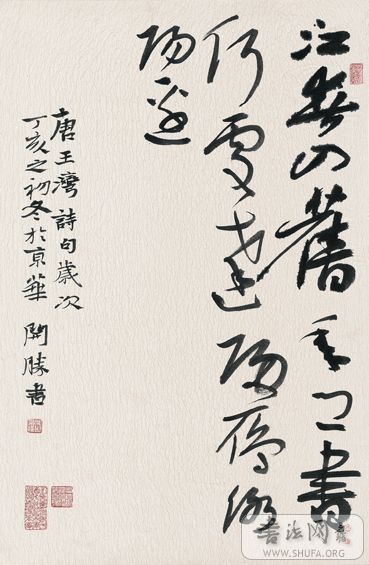 江春入舊年鄉書
何處達歸雁洛
陽邊
唐王灣詩句歲次
丁亥之初冬於京華 開勝書
书法网
WWW.SHUFA.ORG